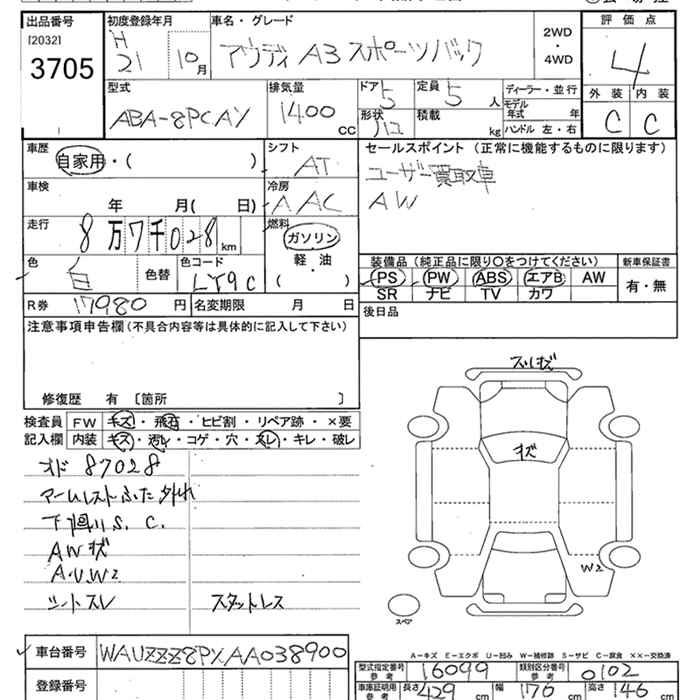 出品番号 初度登録年月 車名・グレード 2WD・4WD 評価点
[2032]
3705
H 21 10月 アウディ A3 スポーツバック 4
型式 排気量 ドア 定員 ディーラー・並行 外装 内装
ABA-8PCAX 1400 CC 5 5 人 モデル年式 年 C C
形状 積載 kg ハンドル 左・右
車歴 シフト セールスポイント (正常に機能するものに限ります)
自家用・( ) AT ユーザー買取車
車検 冷房 AW
年 月( 日) AAC
走行 燃料
8万7千028km ガソリン
軽・油
( )
色 白 色替 色コード LY9C
装備品 (純正品に限り○をつけてください) 新車保証書
PS PW ABS エアB AW 有・無
SR ナビ TV カワ
R券 17980 円 名変期限 月 日
後日品
注意事項申告欄 (不具合内容等は具体的に記入して下さい)
修復歴 有 [箇所 ]
検査員 FW キズ・飛石・ヒビ割・リペア跡・×要
記入欄 内装 キズ・汚レ・コゲ・穴・スレ・キレ・破レ
オド 87028
アームレストふた外れ
下廻り S. C.
AWキズ
A.U.W2
シートスレ スタットレス
キズ
W2
スペア
A-キズ E-エクボ U-凹み W-補修跡 S-サビ C-腐食 XX-交換済
車台番号 WAUZZZ8PXAA038900
登録番号
型式指定番号 参考 16099 類別区分番号 参考 0102
車庫証明用 参考 長さ 429 cm 幅 176 cm 高さ 146 cm